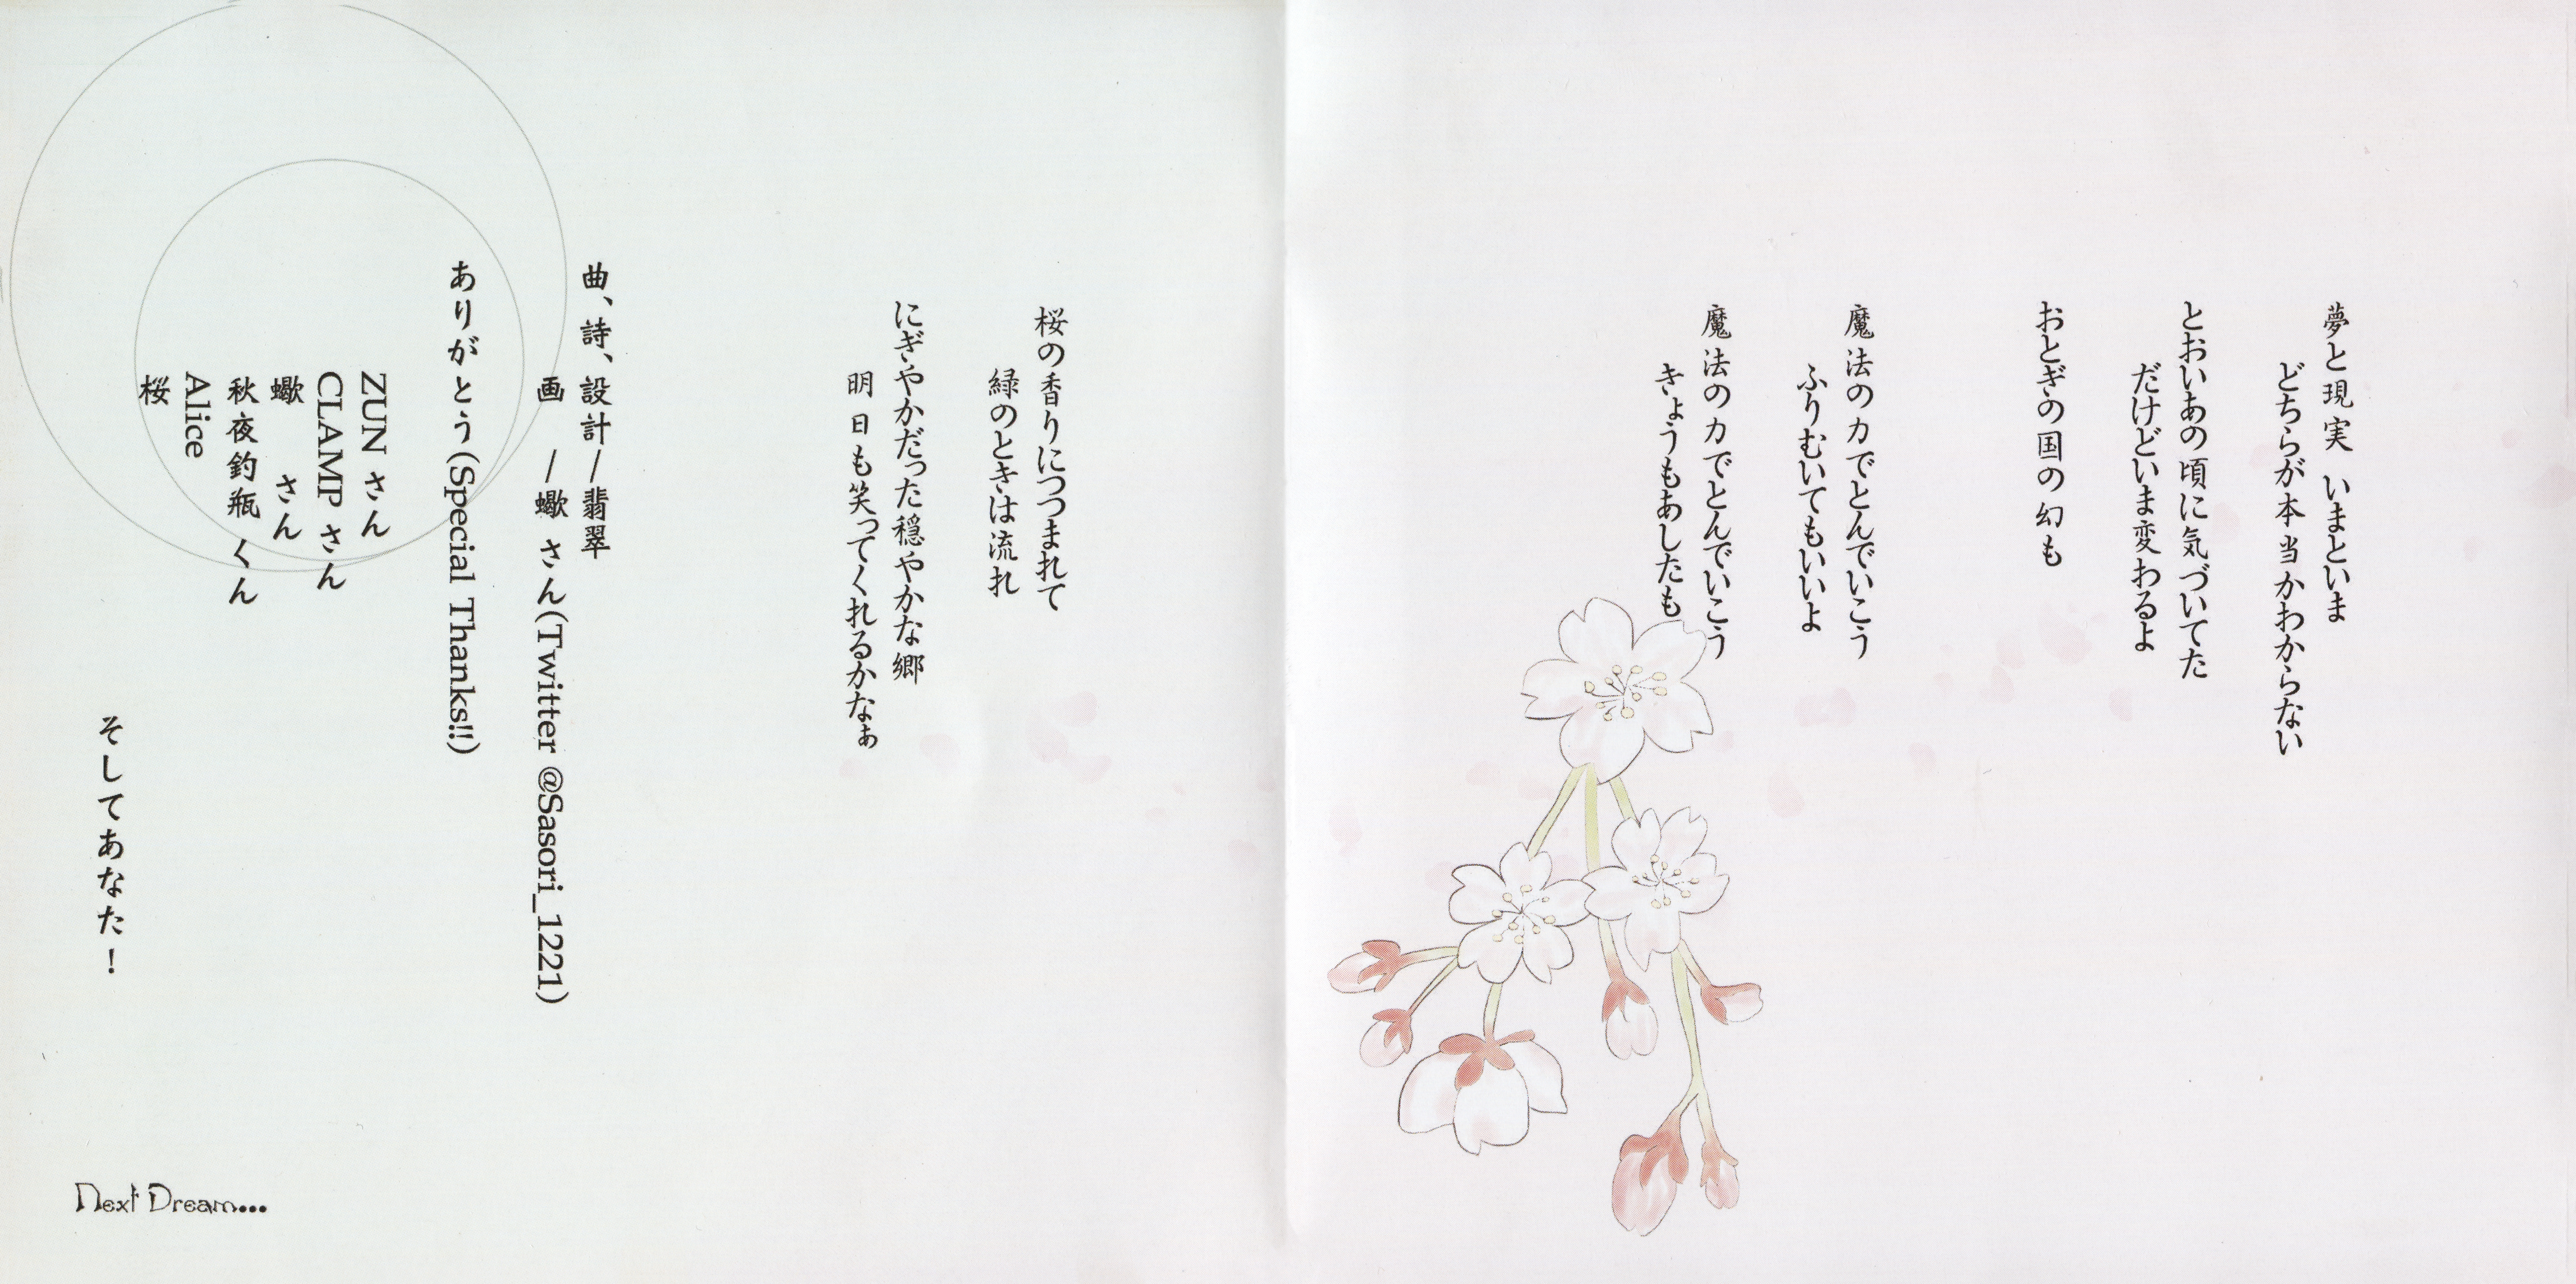 夢と現実 いまといま
どちらが本当かわからない
とおいあの頃に気づいてた
だけどいま変わるよ
おとぎの国の幻も
魔法の力でとんでいこう
ふりむいてもいいよ
魔法の力でとんでいこう
きょうもあしたも
桜の香りにつつまれて
緑のときは流れ
にぎやかだった穏やかな郷
明日も笑ってくれるかなぁ
曲、詩、設計/翡翠
画 /蠍 さん(Twitter @Sasori_1221)
ありがとう(Special Thanks!!)
ZUN さん
CLAMP さん
蠍 さん
秋夜釣瓶 くん
Alice
桜
そしてあなた!
Next Dream...